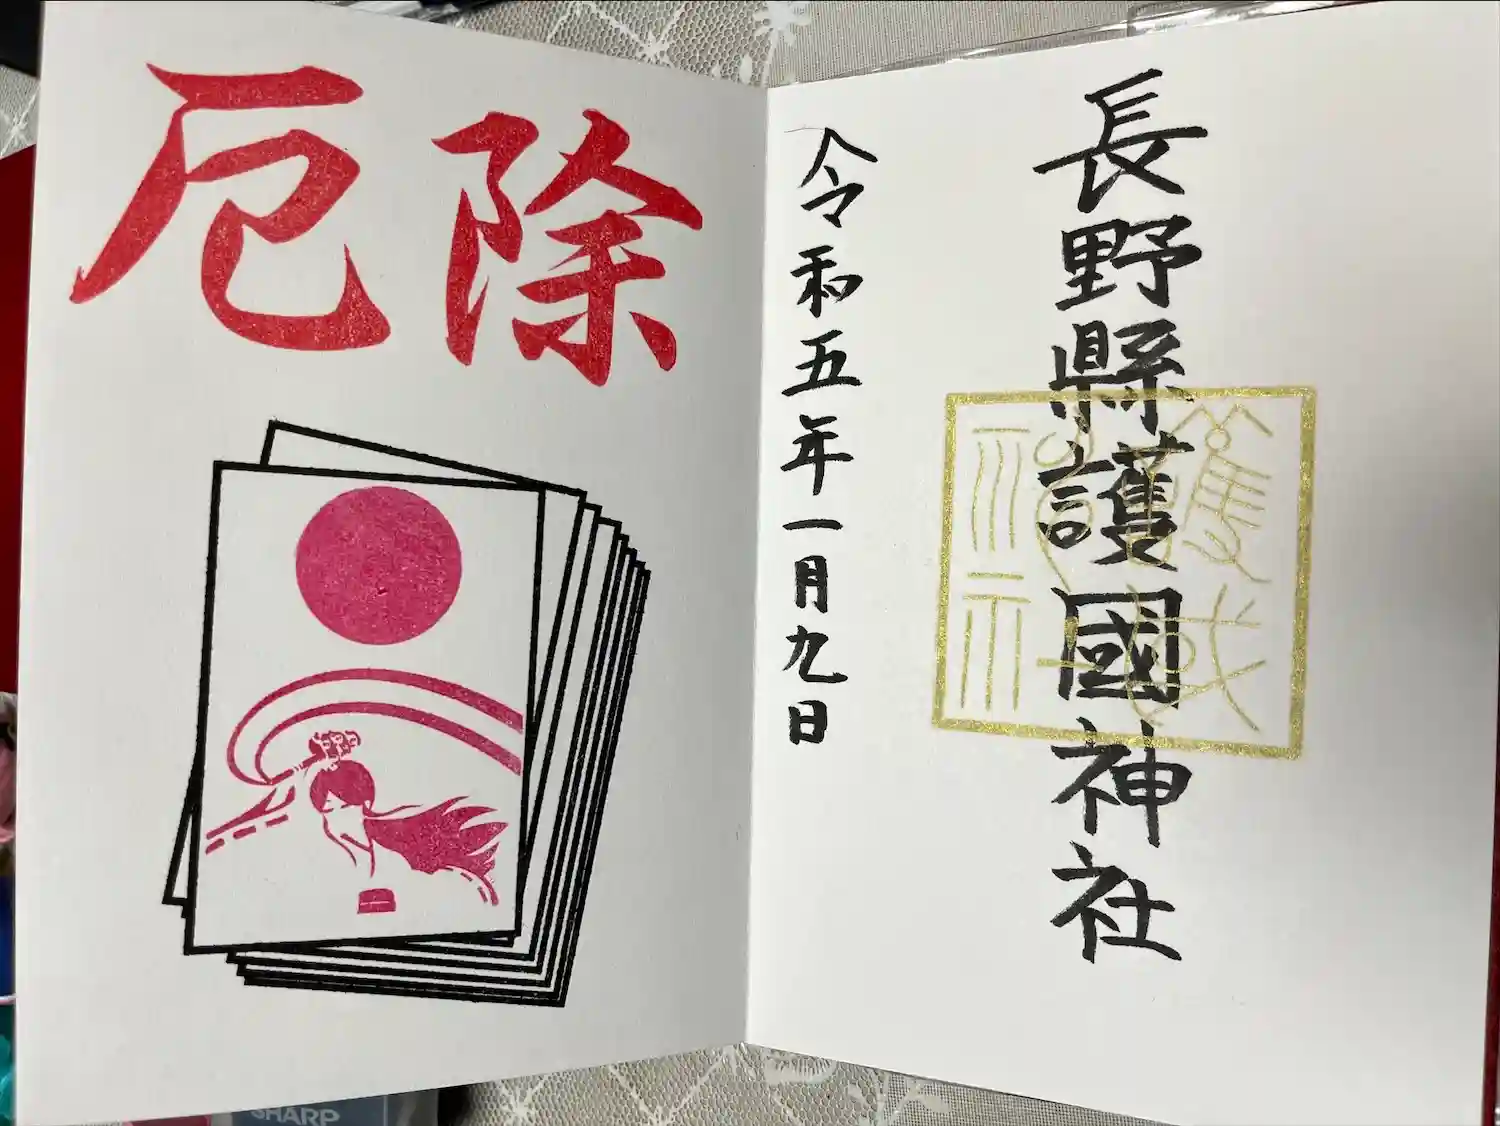 長野縣護國神社
令和五年一月九日
厄除
護國
神社
SHARP